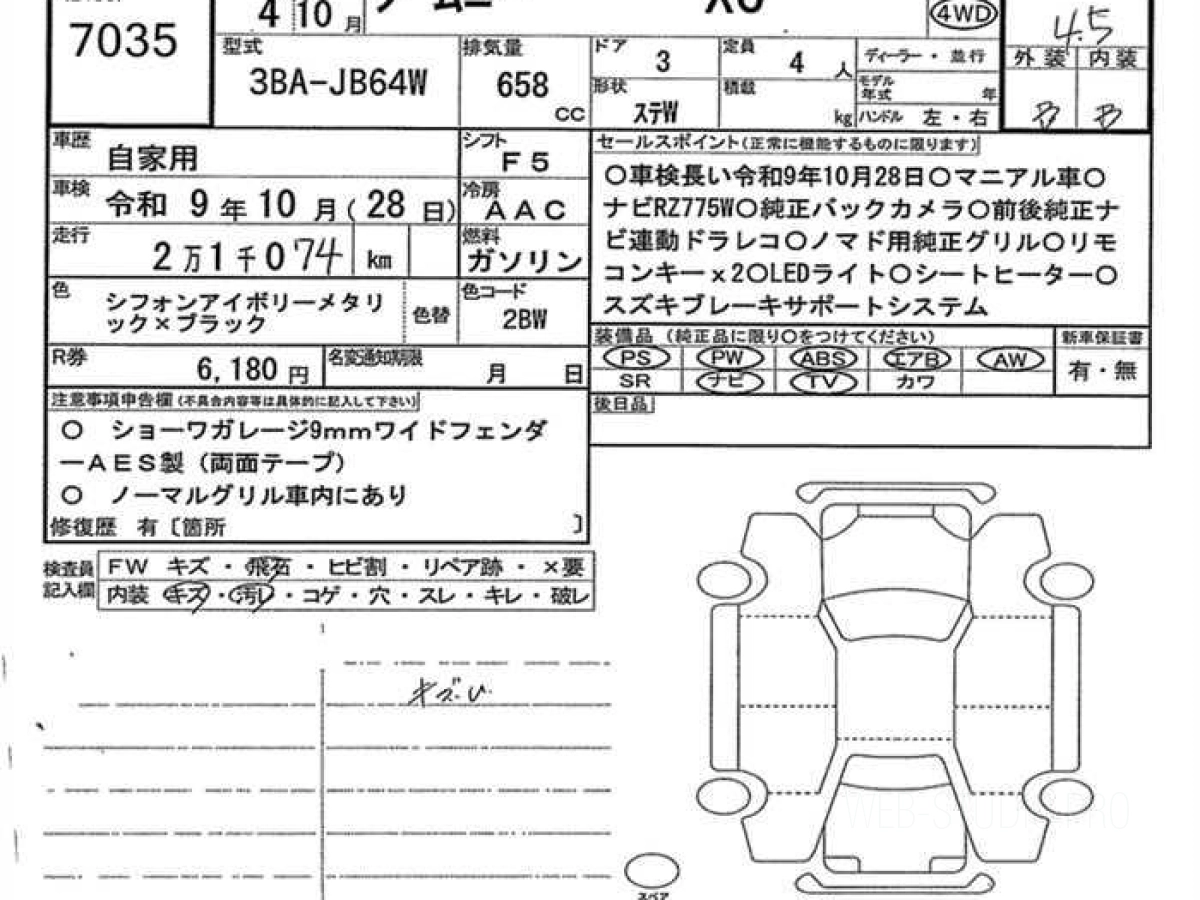 7035
4 10 月
4WD
4.5
型式
3BA-JB64W
排気量
658
CC
ドア
3
定員
4 人
ディーラー・並行
形状
ステW
積載
kg
モデル
年式 年
ハンドル 左・右
外装 内装
B B
車歴
自家用
シフト
F5
車検
令和 9 年 10 月( 28 日)
冷房
AAC
走行
2万1千074 km
燃料
ガソリン
色
シフォンアイボリーメタリ
ック×ブラック
色替
色コード
2BW
R券
6,180 円
名変通知期限
月 日
セールスポイント(正常に機能するものに限ります)
○車検長い令和9年10月28日○マニアル車○
ナビRZ775W○純正バックカメラ○前後純正ナ
ビ連動ドラレコ○ノマド用純正グリル○リモ
コンキーx2○LEDライト○シートヒーター○
スズキブレーキサポートシステム
装備品 (純正品に限り○をつけてください)
PS PW ABS エアB AW
SR ナビ TV カワ
新車保証書
有・無
後日品
注意事項申告欄(不具合内容等は具体的に記入して下さい)
○ ショーワガレージ9mmワイドフェンダ
ーAES製(両面テープ)
○ ノーマルグリル車内にあり
修復歴 有〔箇所 〕
検査員
記入欄
FW キズ・飛石・ヒビ割・リペア跡・×要
内装 キズ・汚れ・コゲ・穴・スレ・キレ・破レ
スペア